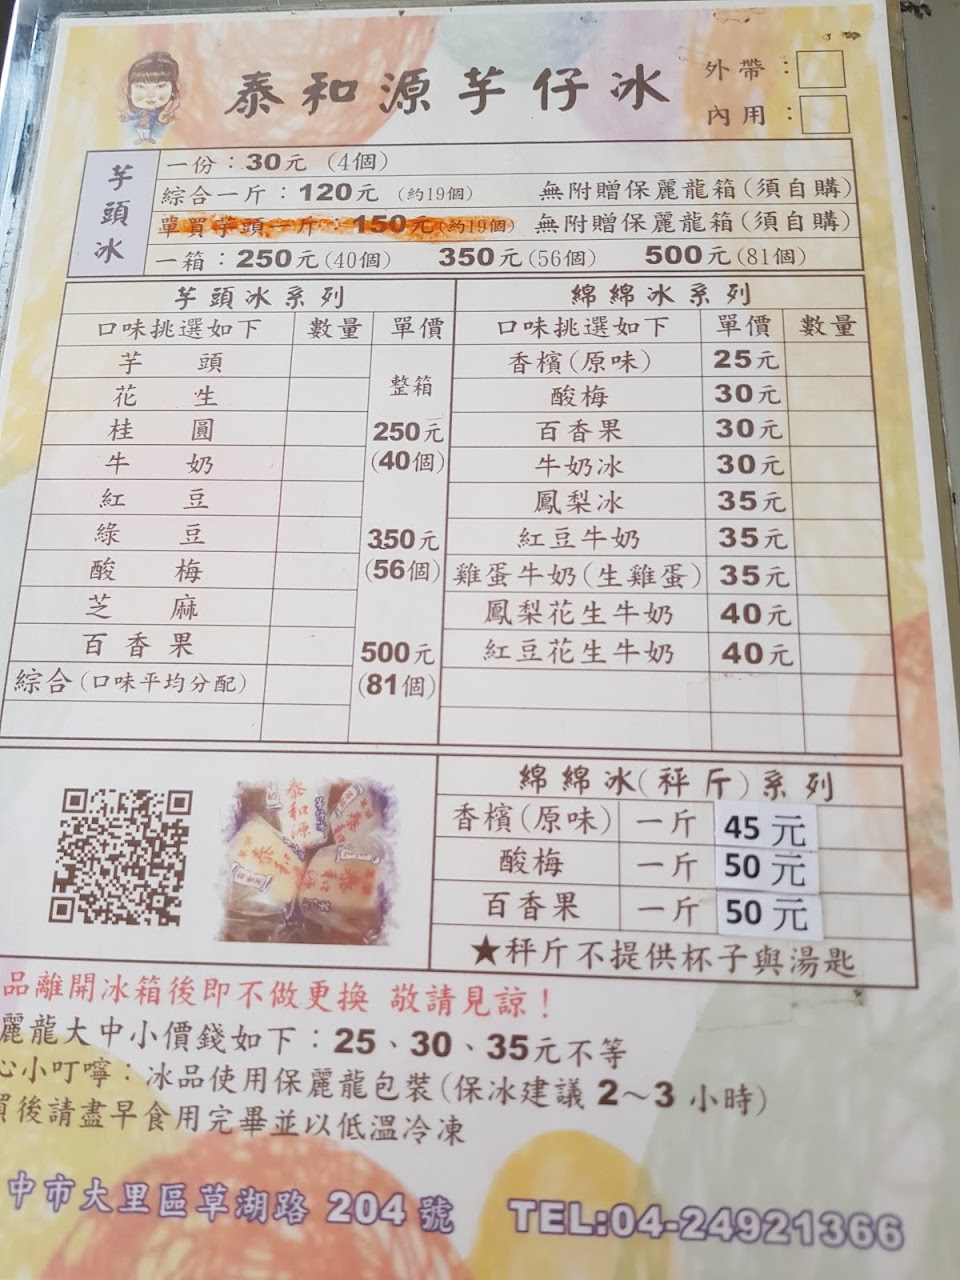 泰和源芋仔冰
外帶：
內用：
芋頭冰
一份：30元（4個）
綜合一斤：120元（約19個） 無附贈保麗龍箱(須自購)
單買芋頭一斤：150元(約19個) 無附贈保麗龍箱(須自購)
一箱：250元(40個) 350元(56個) 500元(81個)
芋頭冰系列
口味挑選如下 數量 單價
芋頭
花生
桂圓
牛奶
紅豆
綠豆
酸梅
芝麻
百香果
綜合(口味平均分配)
整箱
250元
(40個)
350元
(56個)
500元
(81個)
綿綿冰系列
口味挑選如下 單價 數量
香檳(原味) 25元
酸梅 30元
百香果 30元
牛奶冰 30元
鳳梨冰 35元
紅豆牛奶 35元
雞蛋牛奶(生雞蛋) 35元
鳳梨花生牛奶 40元
紅豆花生牛奶 40元
泰和源
綿綿冰(秤斤)系列
香檳(原味) 一斤 45元
酸梅 一斤 50元
百香果 一斤 50元
★秤斤不提供杯子與湯匙
品離開冰箱後即不做更換 敬請見諒！
麗龍大中小價錢如下：25、30、35元不等
心小叮嚀：冰品使用保麗龍包裝(保冰建議 2～3 小時)
買後請盡早食用完畢並以低溫冷凍
中市大里區草湖路 204 號 TEL:04-24921366